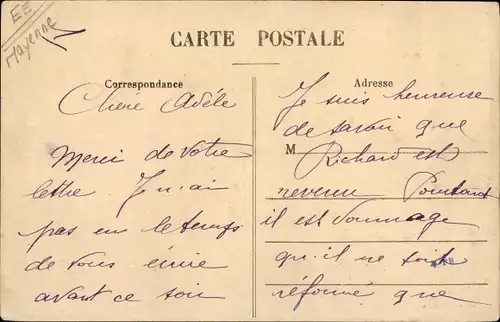 EE
Mayenne
CARTE POSTALE
Correspondance
Chère Adèle
Merci de votre
lettre. Je n'ai
pas eu le temps
de vous écrire
avant ce soir
Adresse
Je suis heureuse
de savoir que
M
Richard est
revenu Pourtant
il est dommage
qu'il ne soit
réformé que